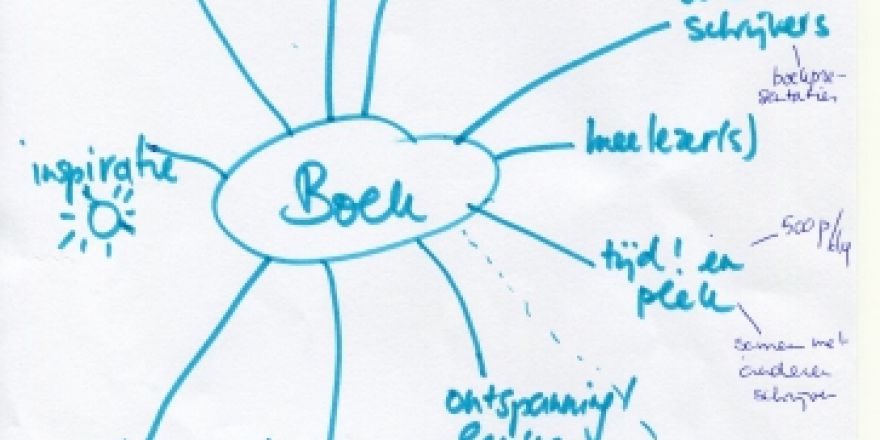 schrijvers
boekpre-
sentaties
meelezer(s)
inspiratie
Boek
tijd! en
plek
500 p/
samen met
anderen
schrijven
ontspanning